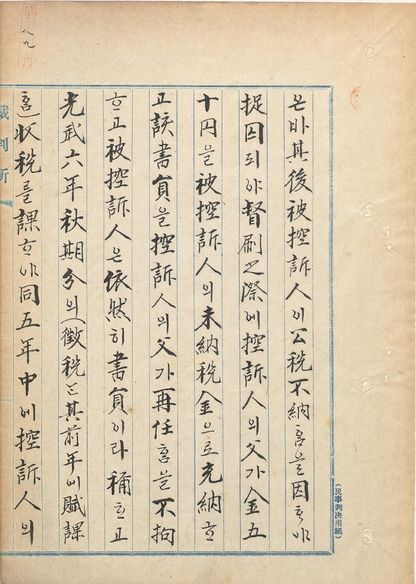 (民事判決用紙)
온바其後被控訴人이公稅不納홈을因ᄒᆞ야
捉囚되야督刷之際에控訴人의父가金五
十円을被控訴人의未納稅金으로充納ᄒᆞ
고該書員을控訴人의父가再任홈을不拘
ᄒᆞ고被控訴人은依然히書員이라稱ᄒᆞ고
光武六年秋期分의(徵稅는其前年에賦課
홈)收稅를課ᄒᆞ야同五年中에控訴人의
判所
八九